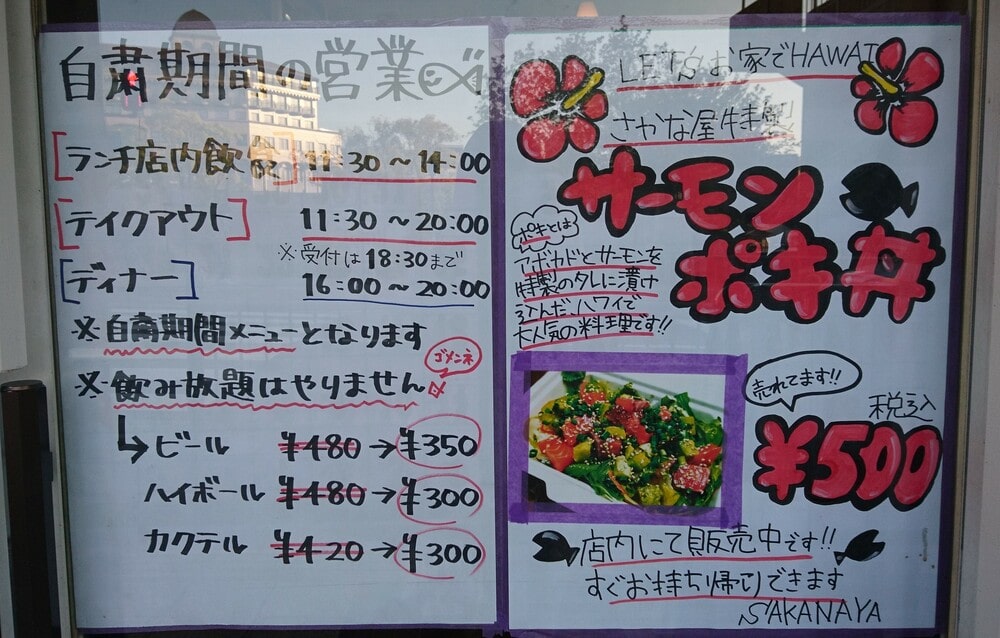 自粛期間の営業
[ランチ店内飲食] 11:30～14:00
[テイクアウト] 11:30～20:00
※受付は18:30まで
[ディナー] 16:00～20:00
※自粛期間メニューとなります
※飲み放題はやりません
ゴメンネ
ビール ¥480→¥350
ハイボール ¥480→¥300
カクテル ¥420→¥300
LET'Sお家でHAWAI
さかな屋特製!
サーモン
ポキ丼
ポキとは
アボカドとサーモンを
特製のタレに漬け
込んだ、ハワイで
大人気の料理です!!
売れてます!!
税込
¥500
店内にて販売中です!!
すぐお持ち帰りできます
SAKANAYA